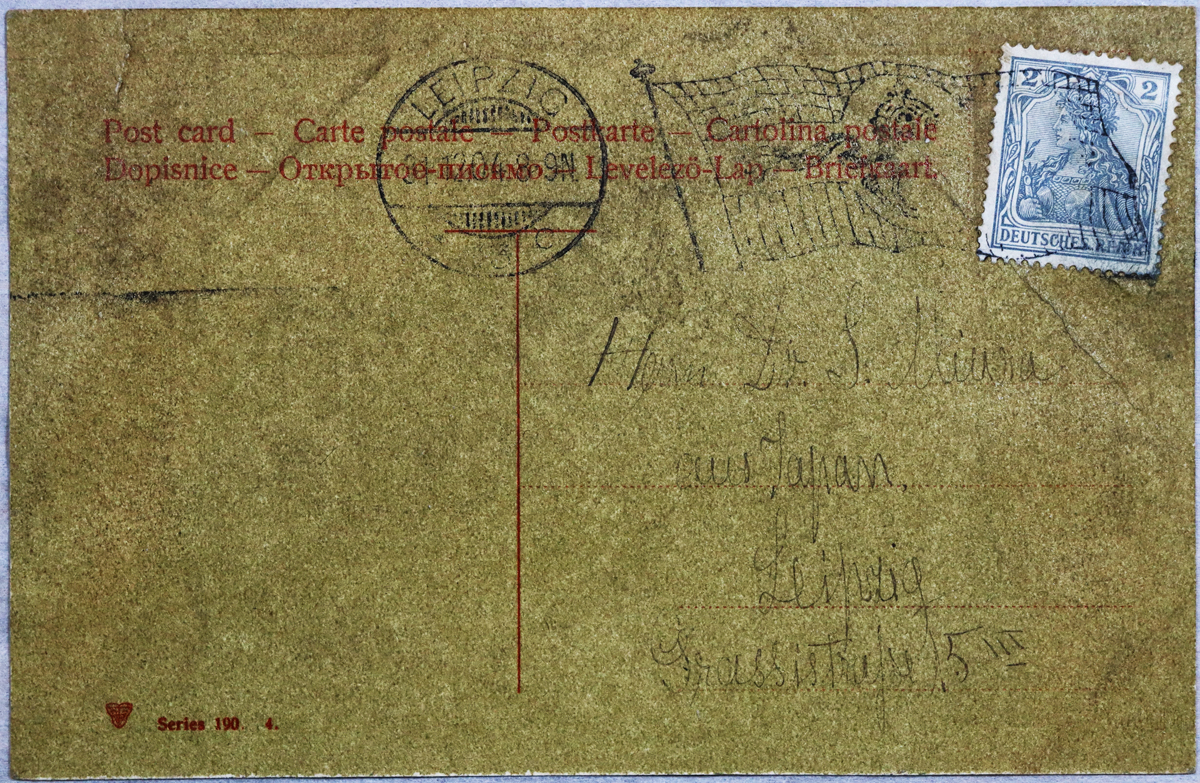 LEIPZIG
2 2
Post card – Carte postale – Postkarte – Cartolina postale
Dopisnice – Открытое письмо – Levelező-Lap – Briefkaart.
31.12.04. 8-9N
DEUTSCHES REICH
C
Herrn Dr. S. Miura
aus Japan,
Leipzig
Grassistraße, 5 III
Series 190 4.